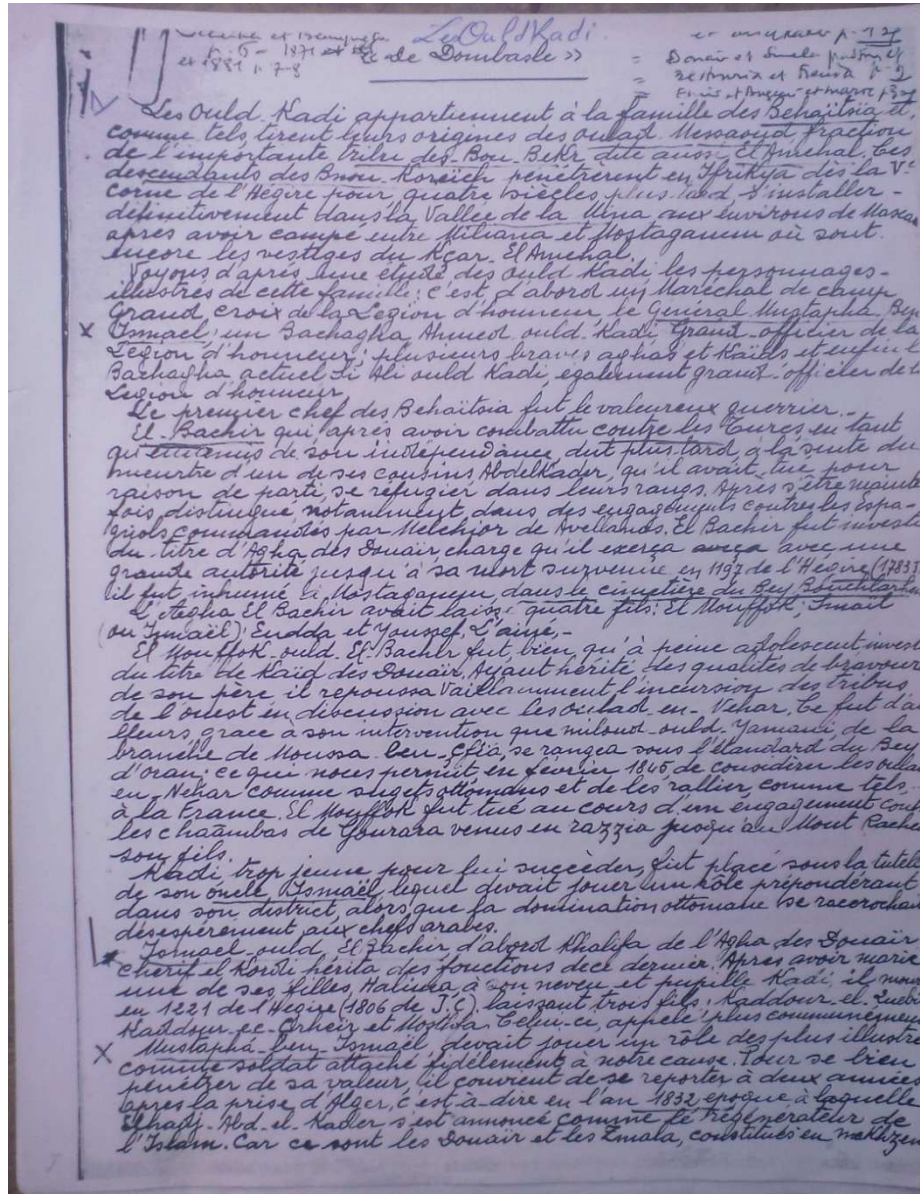 Le Ould Kadi
p. 12
1871
« de Dombasle »
et 1881 p. 7-8
Les Ould Kadi appartiennent à la famille des Behaïtsia et,
comme tels tirent leurs origines des oulad Messaoud fraction
de l'importante tribu des Bou Bekr dite aussi El Amehal. Ces
descendants des Bnou Koreïch pénétrèrent en Ifrikya dès la V.
corne de l'Hégire pour quatre siècles plus tard s'installer
définitivement dans la Vallée de la Mina aux environs de Masca
après avoir campé entre Miliana et Mostaganem où sont
encore les vestiges du Kçar El Amehal.
Voyons d'après une étude des ould Kadi les personnages
illustres de cette famille: c'est d'abord un Maréchal de camp
Grand croix de la Légion d'honneur le Général Mustapha Ben
Ismael; un Bachagha Ahmed ould Kadi Grand officier de la
Légion d'honneur; plusieurs braves aghas et Kaïds et enfin l
Bachagha actuel Si Ali ould Kadi, egalement grand officier de l
Légion d'honneur
Le premier chef des Behaïtsia fut le valeureux guerrier.
El Bachir qui après avoir combattu contre les Turcs en tant
qu' de son indépendance, dut plus tard, à la suite du
meurtre d'un de ses cousins Abdelkader, qu'il avait tué pour
raison de parti, se réfugier dans leurs rangs. Après s'être mainte
fois distingué notamment dans des engagements contre les Espa-
gnols commandés par Melchior de Avellanos. El Bachir fut invest
du titre d'Agha des Douaïr charge qu'il exerça avec une
grande autorité jusqu'à sa mort survenue en 1197 de l'Hégire (1783
il fut inhumé à Mostaganem dans le cimetière du Bey Bouchlarh
L'Agha El Bachir avait laissé quatre fils: El Mouffok; Smaïl
(ou Ismaël); Eudda et Youssef. L'ainé,-
El Mouffok ould El Bachir fut, bien qu'à peine adolescent invest
du titre de Kaïd des Douaïr. Ayant hérité des qualités de bravour
de son père il repoussa vaillamment l'incursion des tribus
de l'ouest en discussion avec les oulad en Nehar. Ce fut d'ai
lleurs grace à son intervention que miloud ould Yamani, de la
branche de Moussa ben Çfia, se rangea sous l'étandard du Bey
d'oran; ce qui nous permit, en février 1845 de considérer les oulad
en Nehar comme sujets ottomans et de les rallier, comme tels,
à la France. El Mouffok fut tué au cours d'un engagement cont
les chaâmbas de Gourara venus en razzia jusqu'au Mont Rache
son fils.
Kadi trop jeune pour lui succèder, fut placé sous la tutel
de son oncle Ismaël lequel devait jouer un rôle prépondérant
dans son district, alors que la domination ottomane se raccrochai
désespérement aux chefs arabes.
Ismael ould El Bachir d'abord Khalifa de l'Agha des Douaïr
Chérif el Kordi hérita des fonctions de ce dernier. Après avoir marié
une de ses filles, Halima à son neveu et pupille Kadi, il mou
en 1221 de l'Hégire (1806 de J.C), laissant trois fils: Kaddour el
Kaddour ec et Mostfa. Celui-ci, appelé plus communément
Mustapha ben Ismaël, devait jouer un rôle des plus illustre
comme soldat attaché fidélement à notre cause. Pour se bien
pénétrer de sa valeur, il convient de se reporter à deux année
après la prise d'Alger, c'est-à-dire en l'an 1832 époque à laquelle
Elhadj Abd el Kader s'est annoncé comme le régénérateur de
l'Islam. Car ce sont les Douaïr et les Zmala, constitués en makhzen